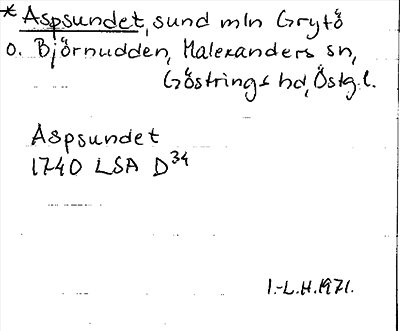 * Aspsundet, sund mln Grytö
o. Björnudden, Malexanders sn,
Göstrings hd, Östg.l.
Aspsundet
1740 LSA D34
I.-L.H.1971.